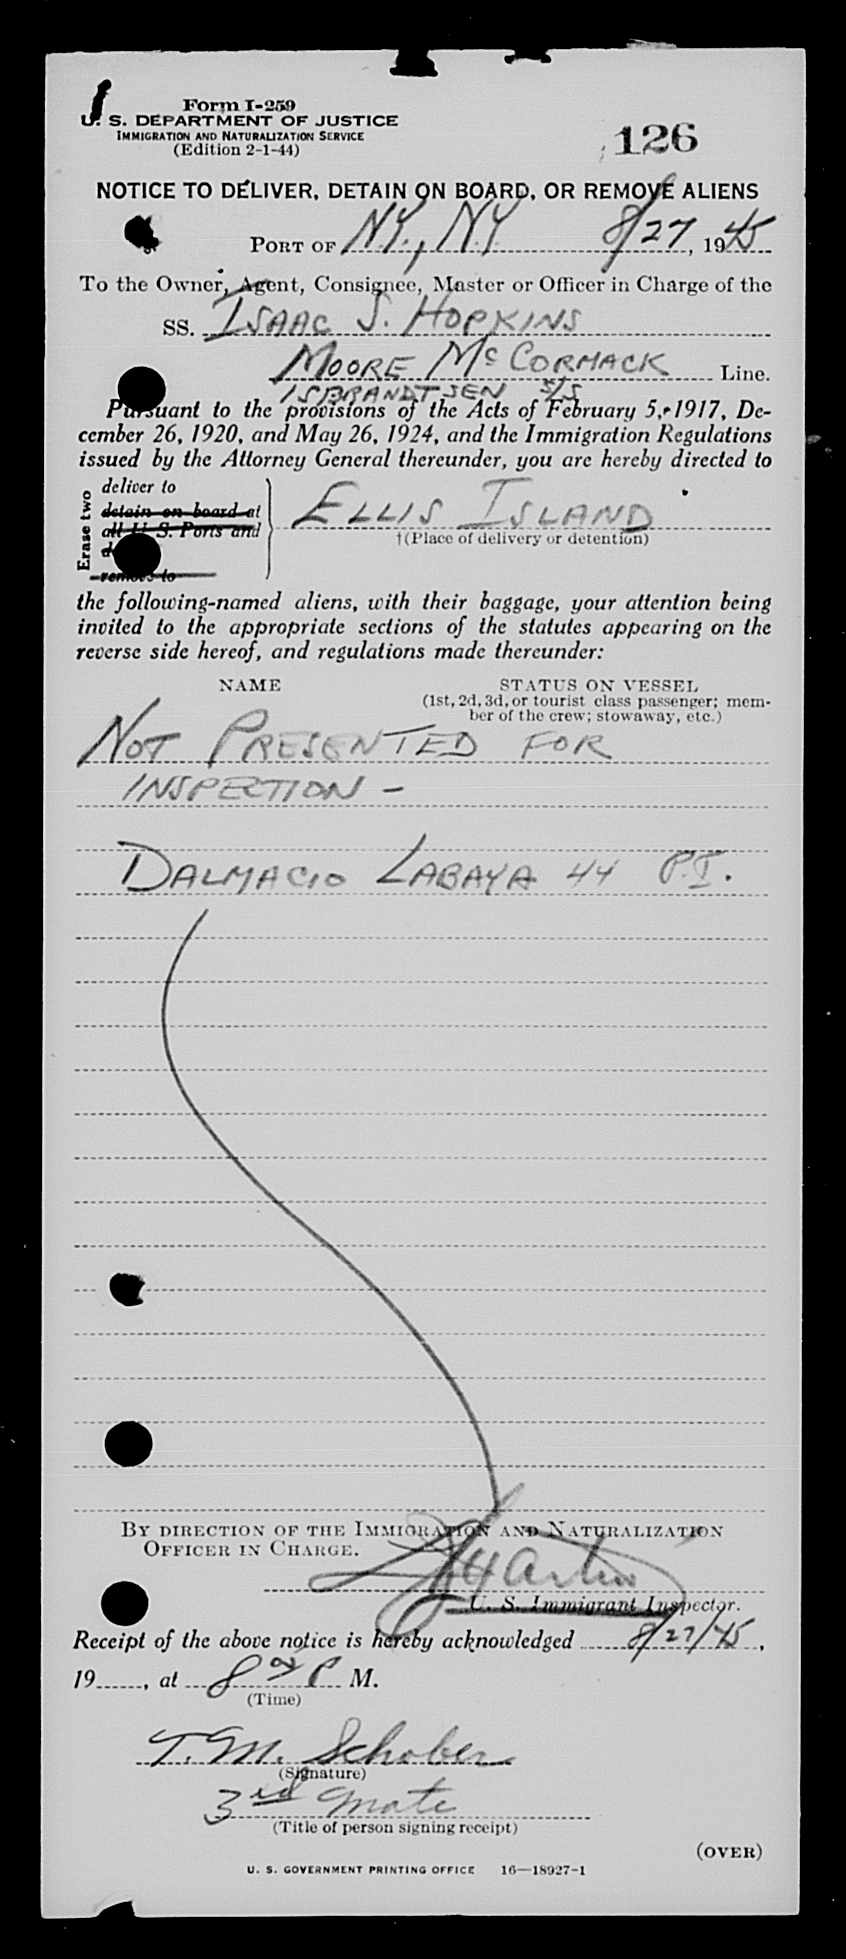 Form I-259
U. S. DEPARTMENT OF JUSTICE
IMMIGRATION AND NATURALIZATION SERVICE
(Edition 2-1-44)
126
NOTICE TO DELIVER, DETAIN ON BOARD, OR REMOVE ALIENS
PORT OF N.Y., N.Y. 8/27, 1945
To the Owner, Agent, Consignee, Master or Officer in Charge of the
SS. ISAAC S. HOPKINS
MOORE McCORMACK Line.
ISBRANDTSEN S/S
Pursuant to the provisions of the Acts of February 5, 1917, De-
cember 26, 1920, and May 26, 1924, and the Immigration Regulations
issued by the Attorney General thereunder, you are hereby directed to
Erase two
deliver to
detain on board at
all U. S. Ports and
remove to
ELLIS ISLAND
†(Place of delivery or detention)
the following-named aliens, with their baggage, your attention being
invited to the appropriate sections of the statutes appearing on the
reverse side hereof, and regulations made thereunder:
NAME STATUS ON VESSEL
(1st, 2d, 3d, or tourist class passenger; mem-
ber of the crew; stowaway, etc.)
NOT PRESENTED FOR
INSPECTION -
DALMACIO LABAYA 44 P.I.
BY DIRECTION OF THE IMMIGRATION AND NATURALIZATION
OFFICER IN CHARGE.
U. S. Immigrant Inspector.
Receipt of the above notice is hereby acknowledged 8/27/45,
19......, at 8 P M.
(Time)
T. M. Schober
(Signature)
3rd Mate
(Title of person signing receipt)
(OVER)
U. S. GOVERNMENT PRINTING OFFICE 16—18927-1